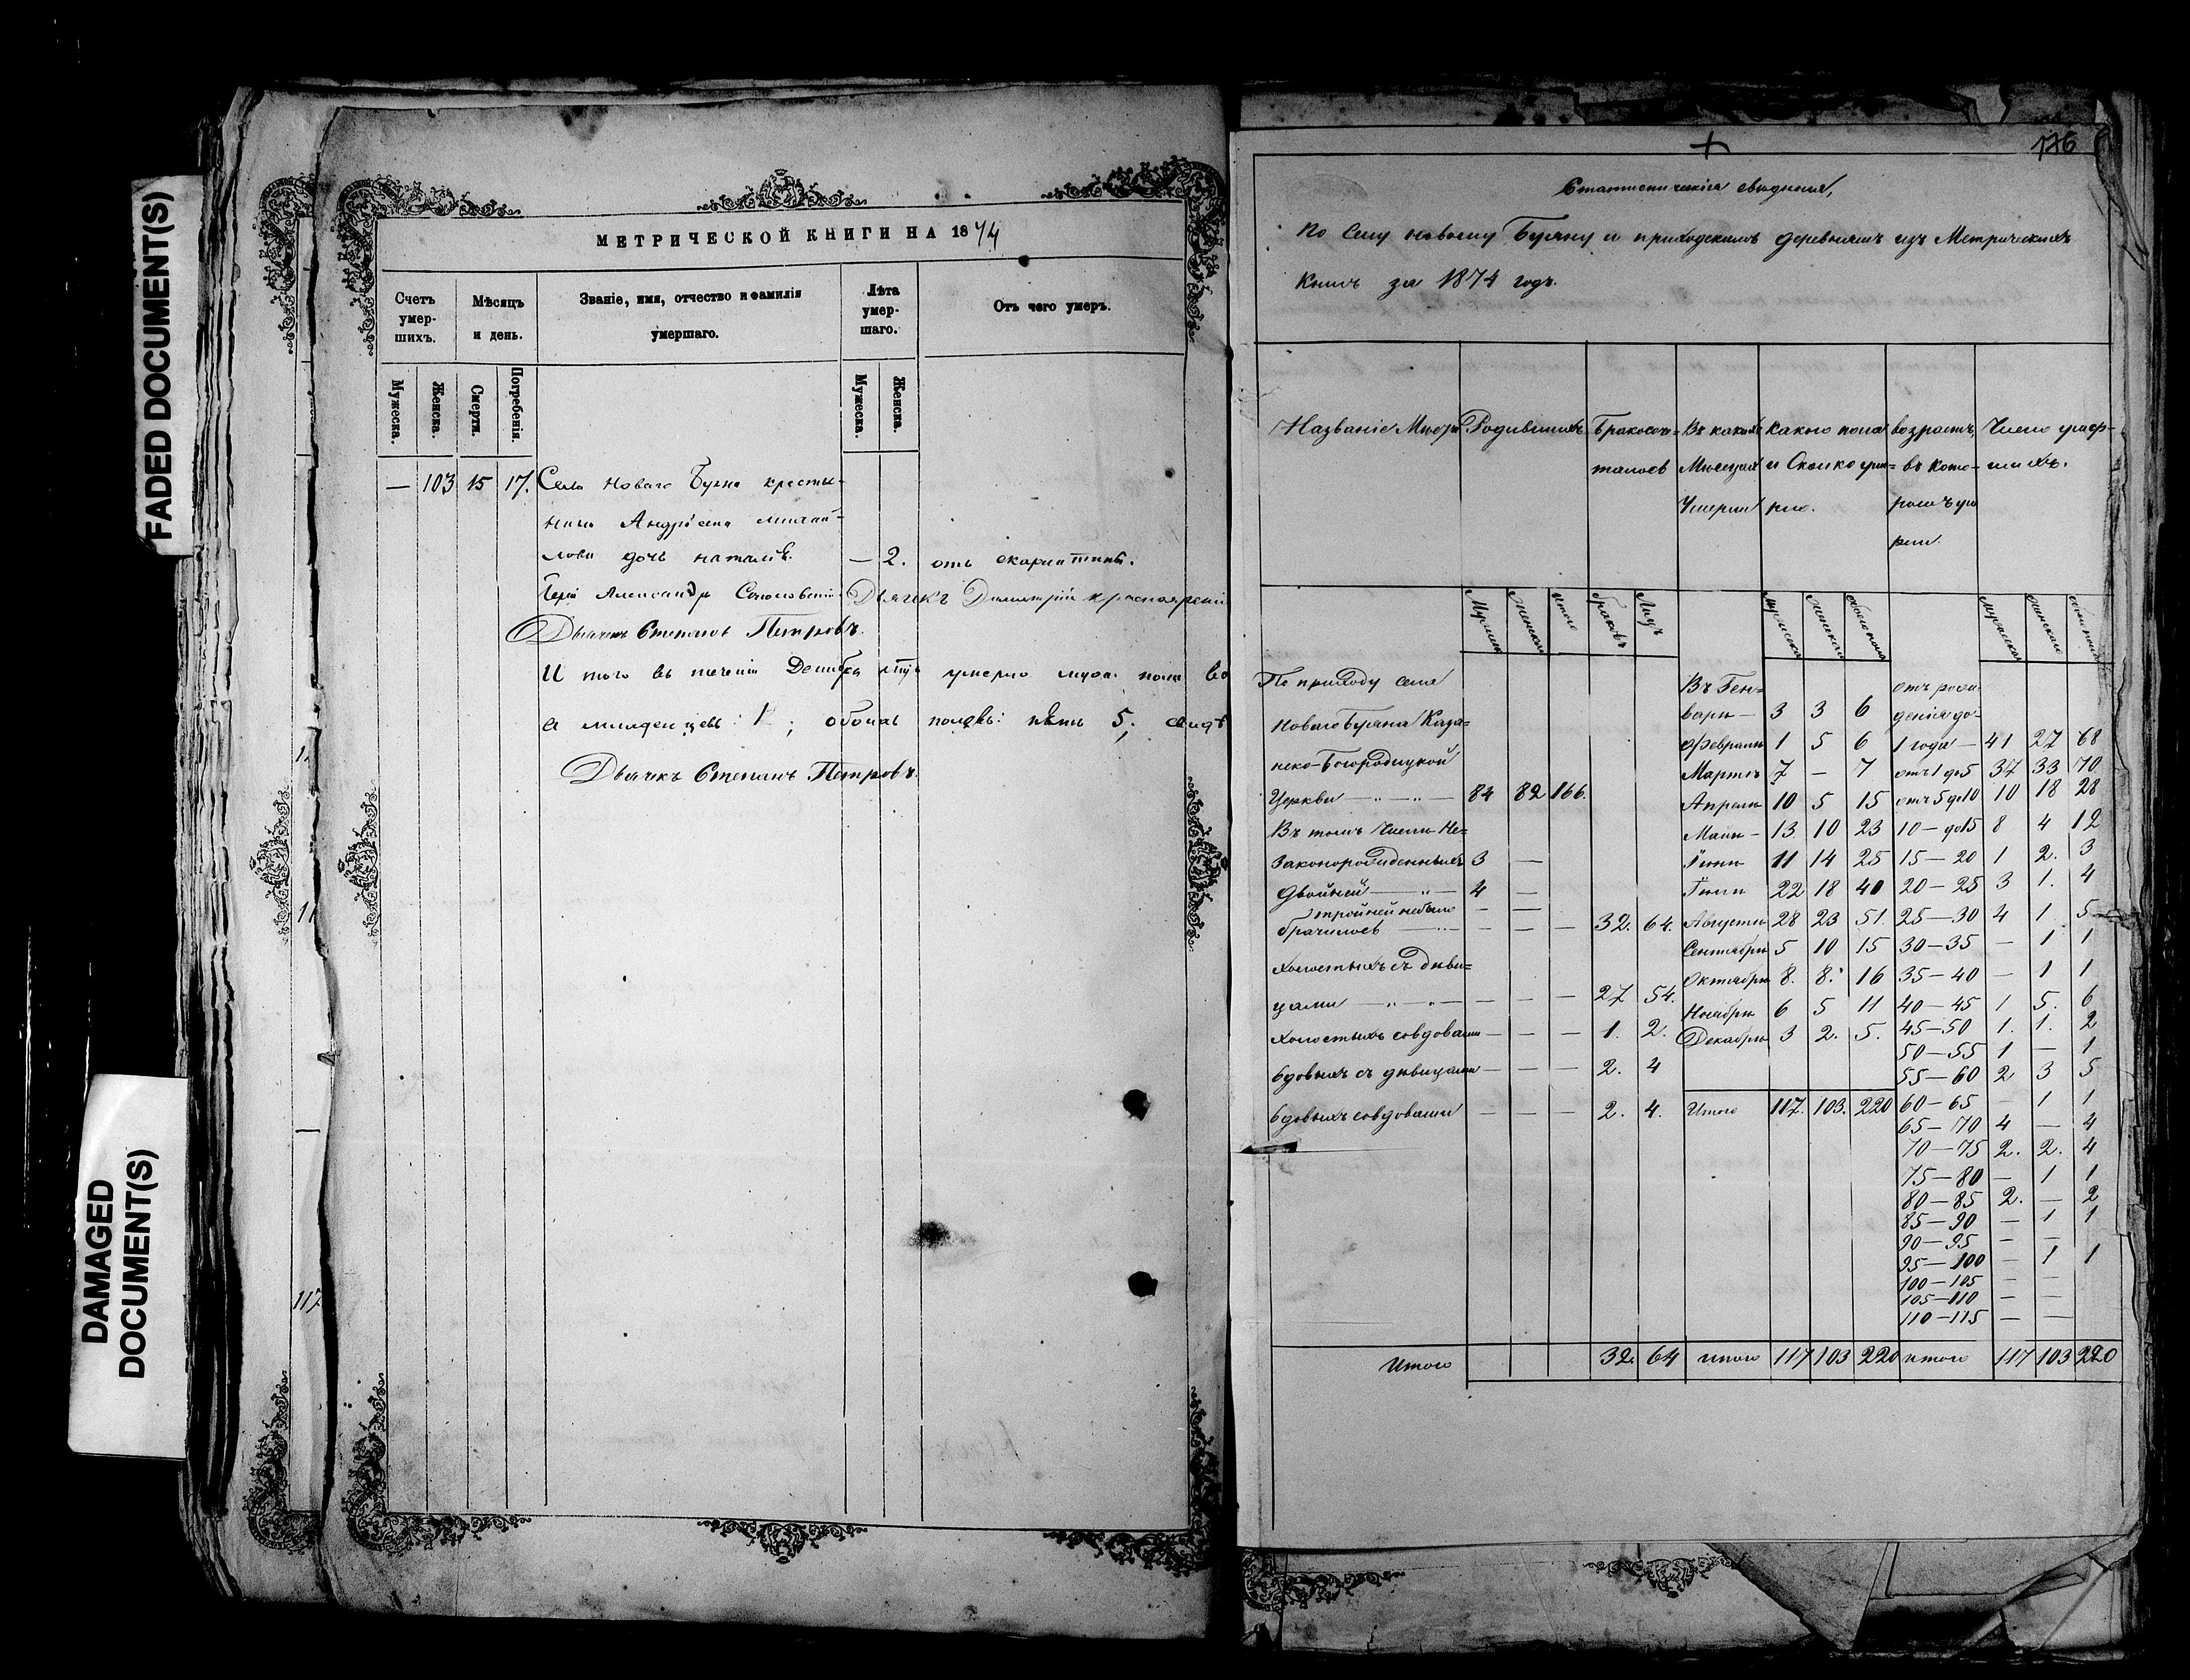 FADED DOCUMENT(S)
DAMAGED
DOCUMENT(S)
117
МЕТРИЧЕСКОЙ КНИГИ НА 1874
Счетъ умер-шихъ.
Мѣсяцъ и день.
Званіе, имя, отчество и фамилія умершаго.
Лѣта умер-шаго.
Отъ чего умеръ.
Мужеска. Женска. Смерти. Погребенія. Мужеска. Женска.
— 103 15 17. Села Новаго Буяна крестья-
нина Андрея Михай-
лова дочь Наталія. — 2. отъ скарлатины.
Іерей Александръ Дьячекъ Димитрій
Дьячекъ Степанъ Петровъ.
И того въ теченіи Декабря умерло муж. пола
а младенцевъ 1; обоихъ половъ: пять 5;
Дьячекъ Степанъ Петровъ.
176
Статистическія свѣдѣнія,
По Селу новому Буяну и приходскимъ деревнямъ изъ Метрическихъ
Книгъ за 1874 годъ.
Названіе Мѣстъ Родившихся Бракосоче- Въ какихъ Какого пола возрастъ, Число умер-
талось Мѣсяцахъ и Сколько уме- въ кото- шихъ.
Умерли рло. ромъ уме
рли.
Мужска Женска итого браковъ Лицъ мужеска женска обоего пола мужеска женска обоего пола
По приходу села Въ Ген- отъ рож-
Новаго Буяна Каза- варѣ — 3 3 6 денія до-
нско-Богородицкой Февралѣ 1 5 6 1 года — 41 27 68
Мартѣ 7 — 7 отъ 1 до 5 37 33 70
Церкви — „ — „ — 84 82 166. Апрѣлѣ 10 5 15 отъ 5 до 10 10 18 28
Въ томъ Числѣ Не- Маѣ — 13 10 23 10 — до 15 8 4 12
законорожденныхъ 3 — Іюнѣ 11 14 25 15 — 20 1 2. 3
двойней — „ — 4 — Іюлѣ 22 18 40 20 — 25 3 1. 4
тройней небыло — —
брачилось — „ — — — — 32. 64. Августѣ 28 23 51. 25 — 30 4 1 5
Сентябрѣ 5 10 15 30 — 35 — 1 1
холостыхъ съ дѣви- Октябрѣ 8. 8. 16 35 — 40 — 1 1
цами — „ — „ — — — — 27 54. Ноябрѣ 6 5 11 40 — 45 1 5. 6
холостыхъ совдовами — — — 1. 2. Декабрѣ 3 2. 5. 45 — 50 1. 1. 2
50 — 55 1 — 1
вдовыхъ съ дѣвицами — — — 2. 4 55 — 60 2 3 5
вдовыхъ совдовами — — — 2. 4. Итого 117. 103. 220 60 — 65 — 1 1
65 — 70 4 — 4
70 — 75 2. 2. 4
75 — 80 — 1 1
80 — 85 2. — 2
85 — 90 — 1 1
90 — 95 — —
95 — 100 — 1 1
100 — 105 — —
105 — 110 — —
110 — 115 — —
Итого 32. 64 итого 117 103 220 итого 117 103 220